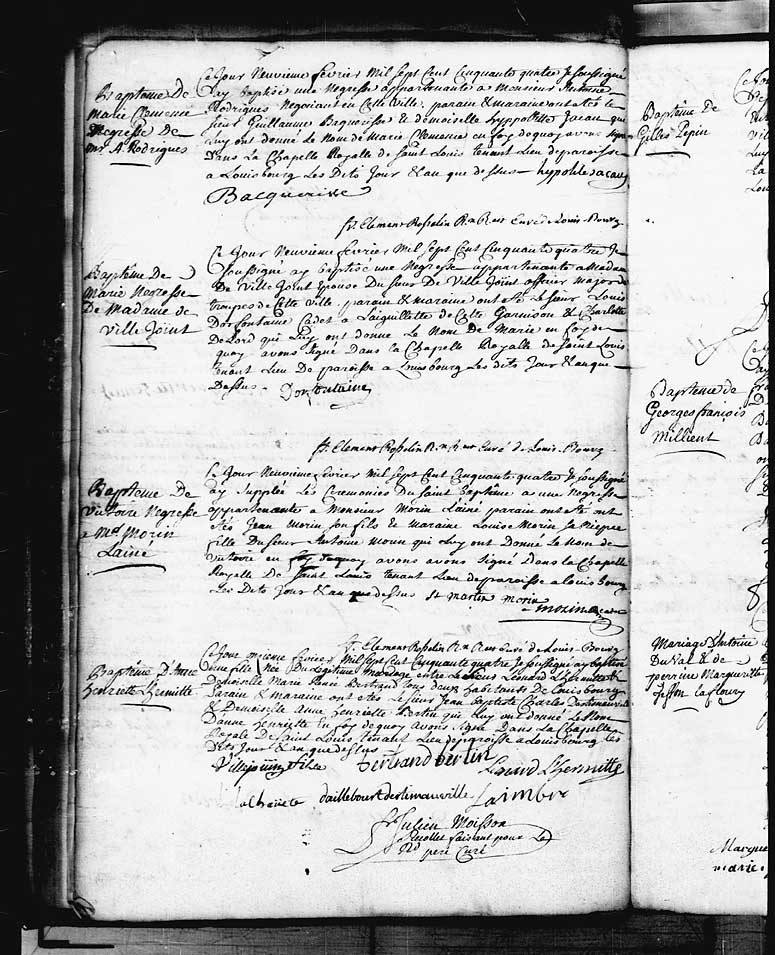 Baptême De
Marie Clemence
Negresse de
Mr A. Rodrigues
Ce Jour Neuvieme fevrier Mil Sept Cent Cinquante quatre Je soussigné
ay Baptisé une Negresse appartenante a Monsieur Antoine
Rodrigues Negociant en Cette Ville, parain & maraine ont ete le
sieur Guillaume & demoiselle hyppolitte Jacau qui
luy ont donné Le Nom de Marie Clemence en foy dequoy avons signé
Dans La Chapelle Royalle de Saint Louis tenant Lieu de paroisse
a Louisbourg Les Dits Jour & an que dessus hypolite Jacau
Bacquerisse
fr. Clement Rosselin R. Curé de Louis-Bourg
Baptême De
Marie Negresse
De Madame de
Ville Joint
Ce Jour Neuvieme fevrier Mil Sept Cent Cinquante quatre Je
soussigné ay Baptisé une Negresse appartenante a Madame
De Ville Joint Epouse Du Sieur De Ville Joint officier Major des
troupes de Cette Ville. parain & maraine ont ete Le Sieur Louis
Dorfontaine Cadet a Laiguillette de Cette Garnison & Charlotte
DeLord qui Luy ont donné Le Nom De Marie en foy de
quoy avons signé Dans la Chapelle Royalle de Saint Louis
tenant Lieu De paroisse a Louisbourg Les dits Jour & an que
Dessus - Dorfontaine
fr. Clement Rosselin R. Curé de Louis-Bourg
Baptême De
Victoire Negresse
a Mr. Morin
Lainé
Ce Jour Neuvieme fevrier Mil Sept Cent Cinquante quatre Je soussigné
ay Supplée Les Ceremonies Du Saint Baptême a une Negresse
appartenante a Monsieur Morin Lainé parain ont été ont
étés Jean Morin son fils & maraine Louise Morin sa Niepce
fille Du Sieur Antoine Morin qui Luy ont Donné Le Nom de
Victoire en foy dequoy avons avons Signé Dans la Chapelle
Royalle De Saint Louis tenant Lieu de paroisse a Louisbourg
Les Dits Jour & an que dessus St martin morin
morin
fr. Clement Rosselin R. Curé de Louis-Bourg
Baptême D'Anne
henriette Lhermitte
Ce Jour onzieme fevrier Mil Sept Cent Cinquante quatre Je soussigné ay baptisé
une fille Née Du Legitime Mariage entre Le Sieur Leonard L'hermitte &
Demoiselle Marie Bertrand tous deux habitants De Louisbourg
parain & maraine ont etes Le Sieur Jean Baptiste Charles
& Demoiselle Anne henriette Bertin qui Luy ont donné Le Nom
Danne henriette En foy dequoy avons signé Dans La Chapelle
Royale De Saint Louis tenant Lieu de paroisse a Louisbourg les
Dits Jour & an que dessus
Villejoint fils Bertrand Bertin
Leonard L'hermitte
daillebout
St Julien Moisson
Recollet faisant pour Le
Rd pere Curé
Baptême De
Gilles Pepin
Baptême de
Georges françois
Millient
Mariage D'Antoine
DuVal & de
perrine Margueritte
lafleury
Marque
marie